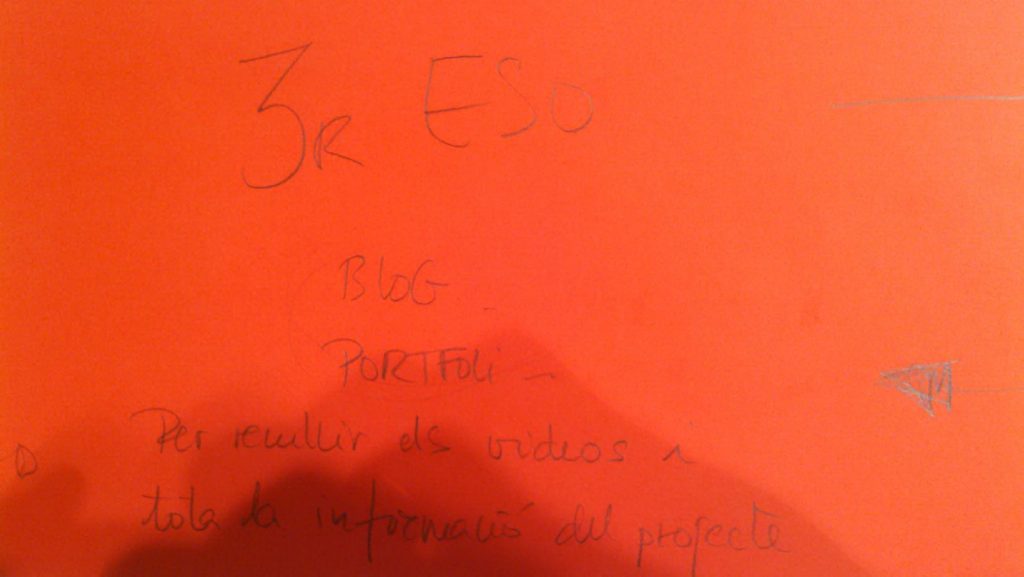 3R ESO
BLOG
PORTFOLI -
Per recullir els videos i
tota la informació del projecte